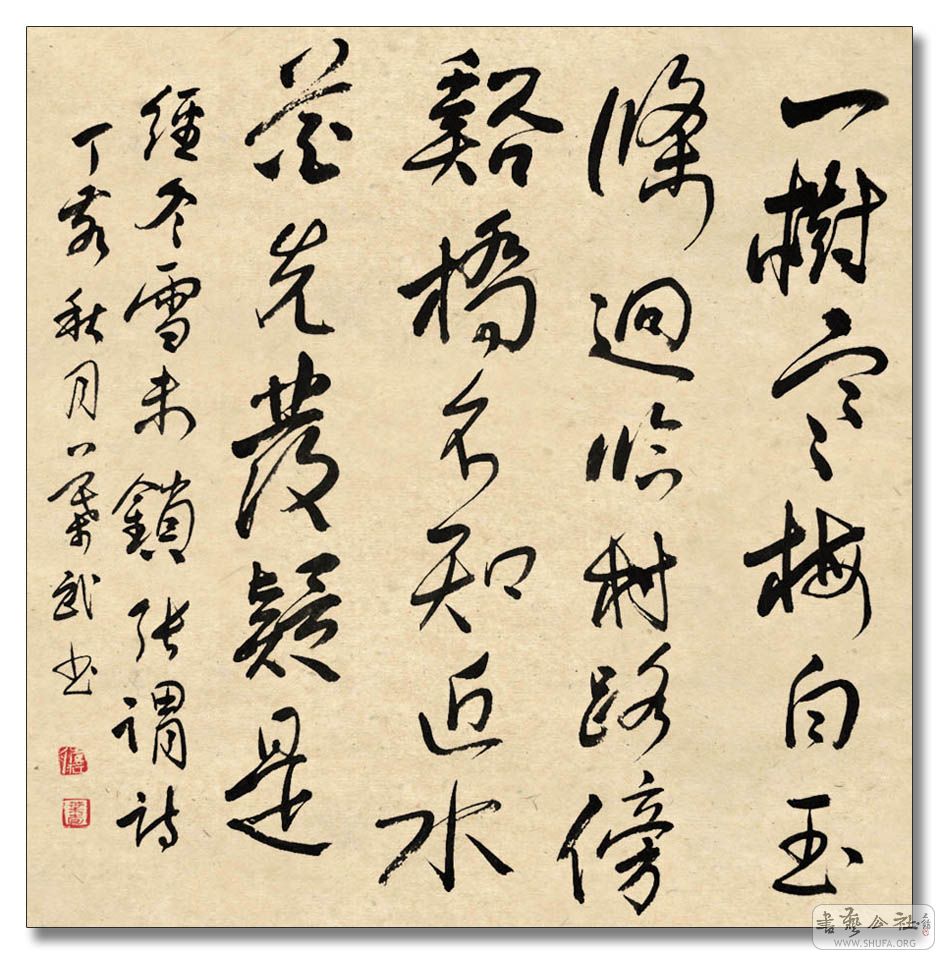 一樹寒梅白玉
條迥臨村路傍
谿橋不知近水
花先發疑是
經冬雪未鎖張謂詩
丁亥秋月葉武书
書藝公社
WWW.SHUFA.ORG